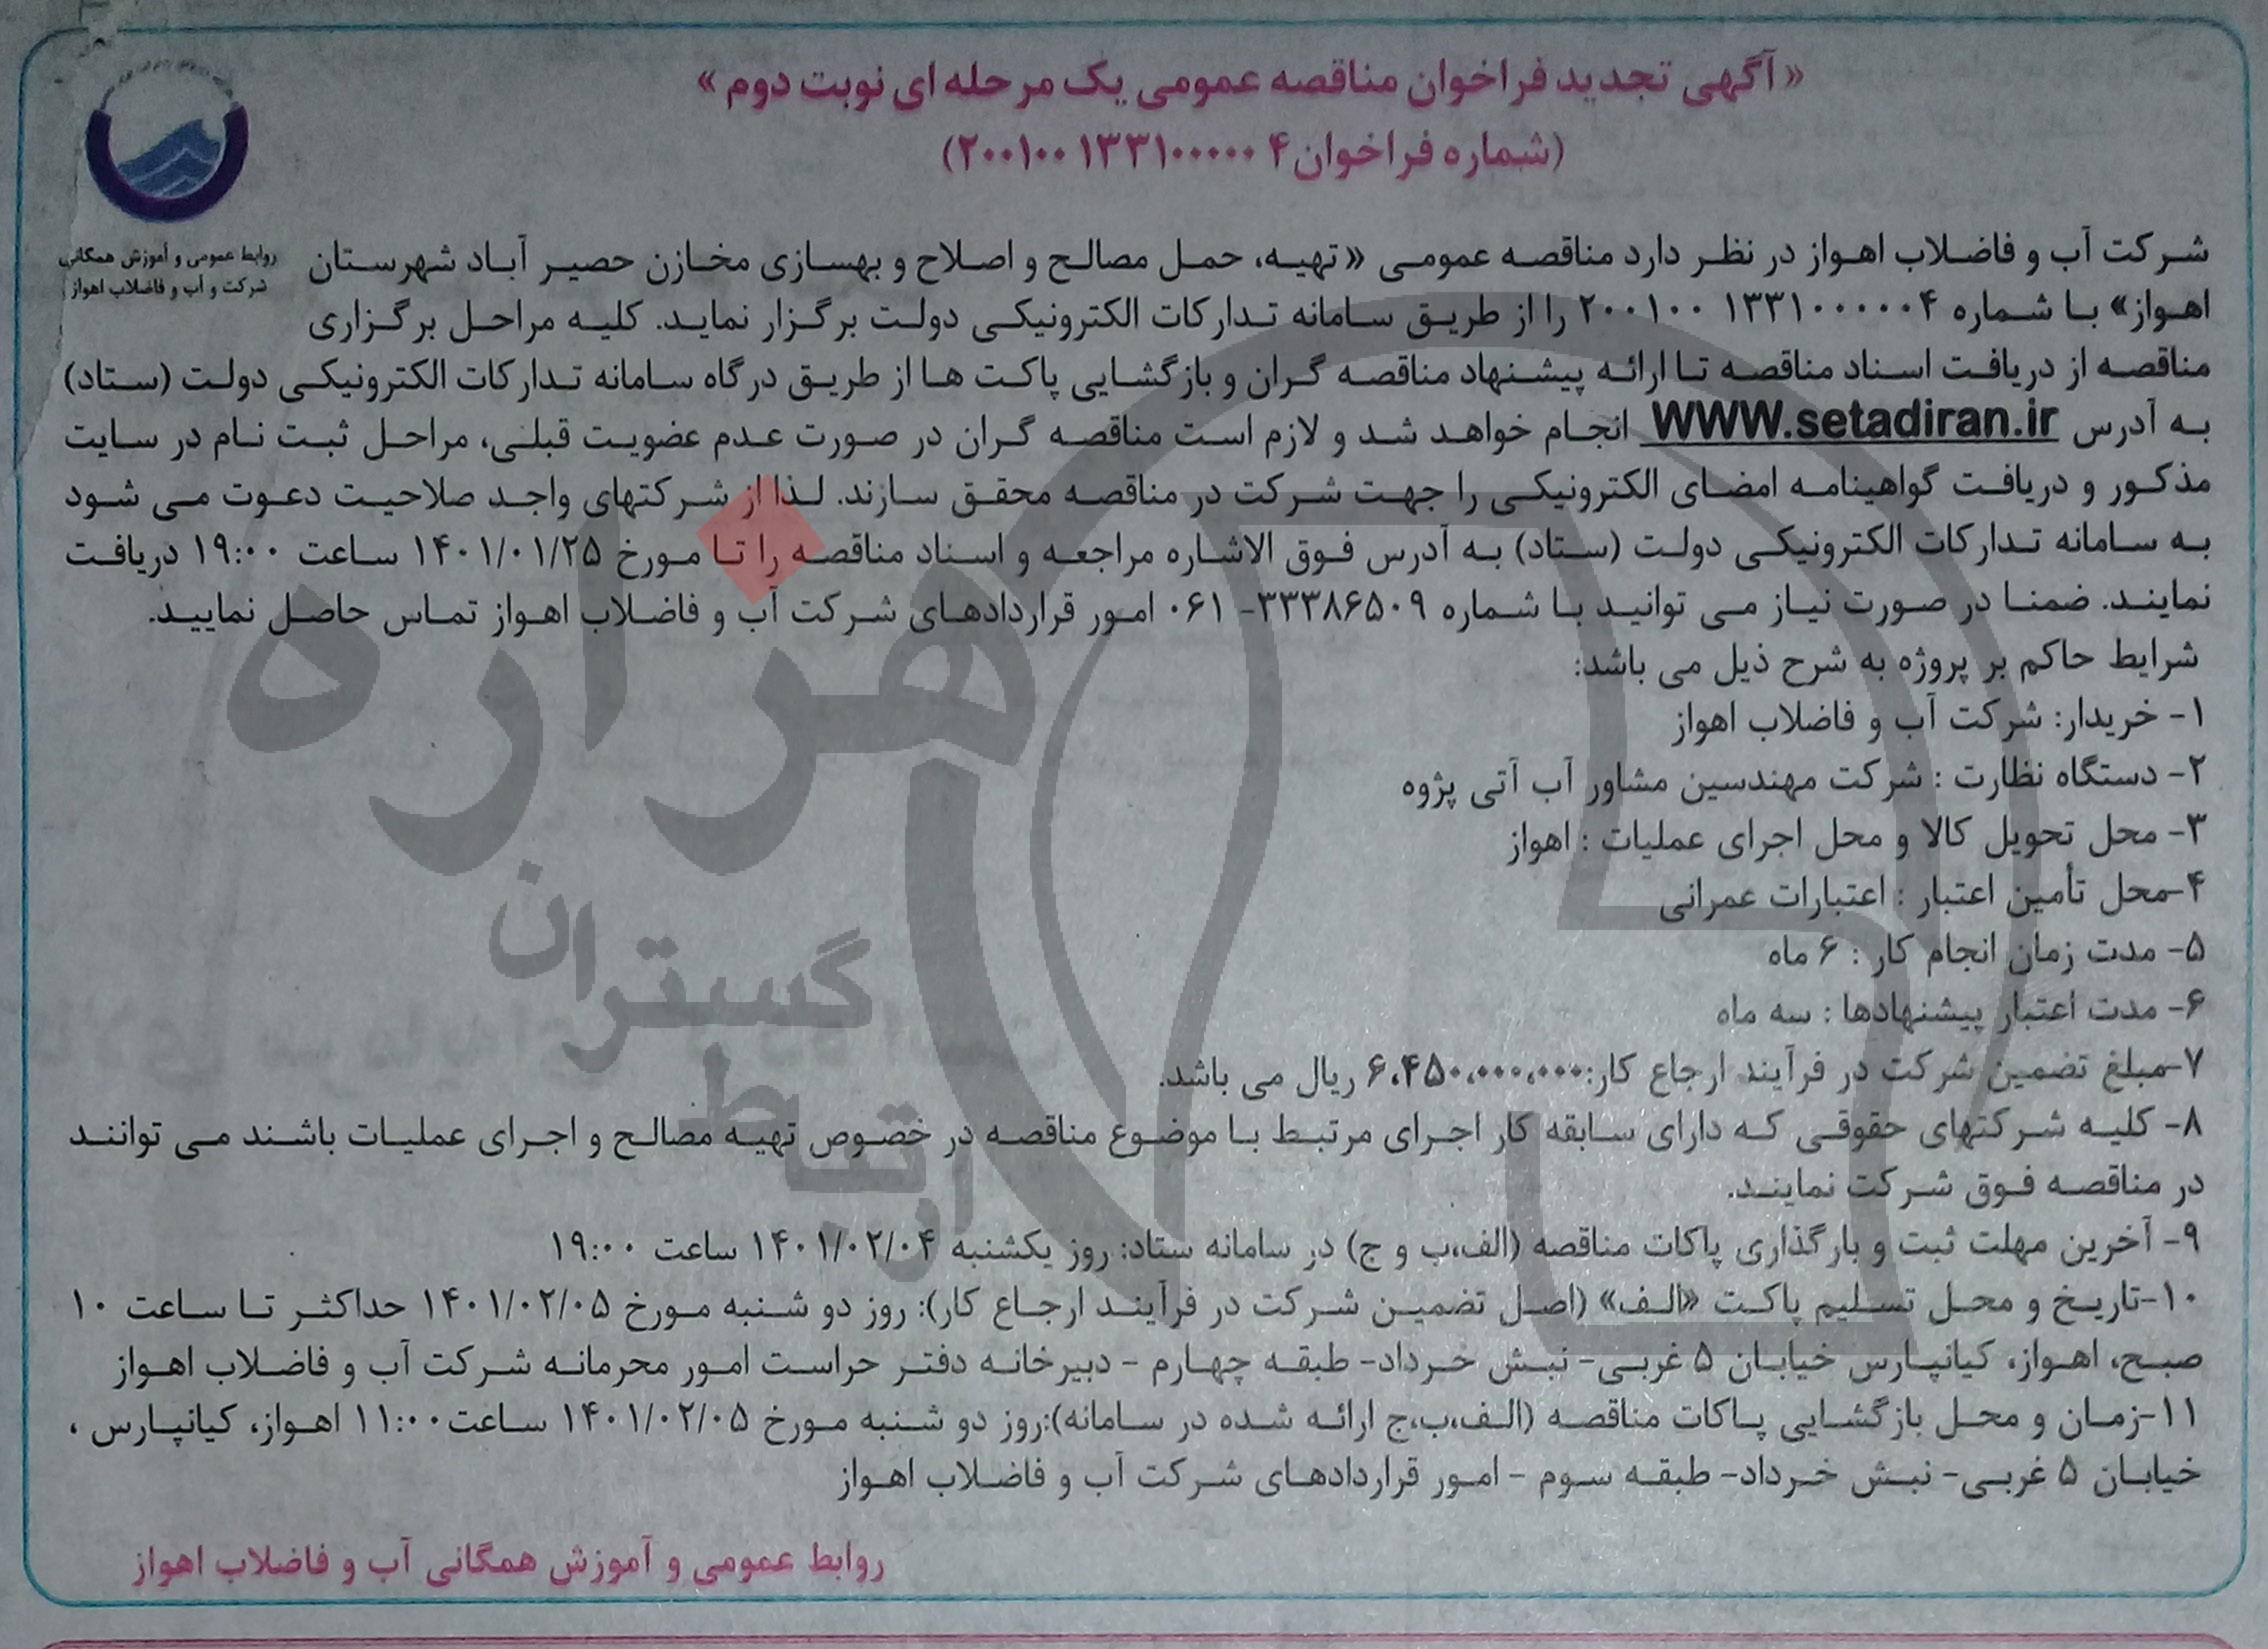 «آگهی تجدید فراخوان مناقصه عمومی یک مرحله ای نوبت دوم»
(شماره فراخوان۴ ۱۳۳۱۰۰۰۰۰ ۲۰۰۱۰۰)
روابط عمومی و آموزش همگانی
شرکت و آب و فاضلاب اهواز
شرکت آب و فاضلاب اهواز در نظر دارد مناقصه عمومی «تهیه، حمل مصالح و اصلاح و بهسازی مخازن حصیر آباد شهرستان
اهواز» با شماره ۱۳۳۱۰۰۰۰۰۴ ۲۰۰۱۰۰ را از طریق سامانه تدارکات الکترونیکی دولت برگزار نماید. کلیه مراحل برگزاری
مناقصه از دریافت اسناد مناقصه تا ارائه پیشنهاد مناقصه گران و بازگشایی پاکت ها از طریق درگاه سامانه تدارکات الکترونیکی دولت (ستاد)
به آدرس WWW.setadiran.ir انجام خواهد شد و لازم است مناقصه گران در صورت عدم عضویت قبلی، مراحل ثبت نام در سایت
مذکور و دریافت گواهینامه امضای الکترونیکی را جهت شرکت در مناقصه محقق سازند. لذا از شرکتهای واجد صلاحیت دعوت می شود
به سامانه تدارکات الکترونیکی دولت (ستاد) به آدرس فوق الاشاره مراجعه و اسناد مناقصه را تا مورخ ۱۴۰۱/۰۱/۲۵ ساعت ۱۹:۰۰ دریافت
نمایند. ضمنا در صورت نیاز می توانید با شماره ۳۳۳۸۶۵۰۹- ۰۶۱ امور قراردادهای شرکت آب و فاضلاب اهواز تماس حاصل نمایید.
شرایط حاکم بر پروژه به شرح ذیل می باشد:
۱- خریدار: شرکت آب و فاضلاب اهواز
۲- دستگاه نظارت : شرکت مهندسین مشاور آب آتی پژوه
۳- محل تحویل کالا و محل اجرای عملیات : اهواز
۴-محل تأمین اعتبار : اعتبارات عمرانی
۵- مدت زمان انجام کار : ۶ ماه
۶- مدت اعتبار پیشنهادها : سه ماه
۷-مبلغ تضمین شرکت در فرآیند ارجاع کار:۶،۴۵۰،۰۰۰،۰۰۰ ریال می باشد.
۸- کلیه شرکتهای حقوقی که دارای سابقه کار اجرای مرتبط با موضوع مناقصه در خصوص تهیه مصالح و اجرای عملیات باشند می توانند
در مناقصه فوق شرکت نمایند.
۹- آخرین مهلت ثبت و بارگذاری پاکات مناقصه (الف،ب و ج) در سامانه ستاد: روز یکشنبه ۱۴۰۱/۰۲/۰۴ ساعت ۱۹:۰۰
۱۰-تاریخ و محل تسلیم پاکت «الف» (اصل تضمین شرکت در فرآیند ارجاع کار): روز دو شنبه مورخ ۱۴۰۱/۰۲/۰۵ حداکثر تا ساعت ۱۰
صبح، اهواز، کیانپارس خیابان ۵ غربی- نبش خرداد- طبقه چهارم - دبیرخانه دفتر حراست امور محرمانه شرکت آب و فاضلاب اهواز
۱۱-زمان و محل بازگشایی پاکات مناقصه (الف،ب،ج ارائه شده در سامانه):روز دو شنبه مورخ ۱۴۰۱/۰۲/۰۵ ساعت۱۱:۰۰ اهواز، کیانپارس ،
خیابان ۵ غربی- نبش خرداد- طبقه سوم - امور قراردادهای شرکت آب و فاضلاب اهواز
روابط عمومی و آموزش همگانی آب و فاضلاب اهواز
هزاره
گستران
ارتباط